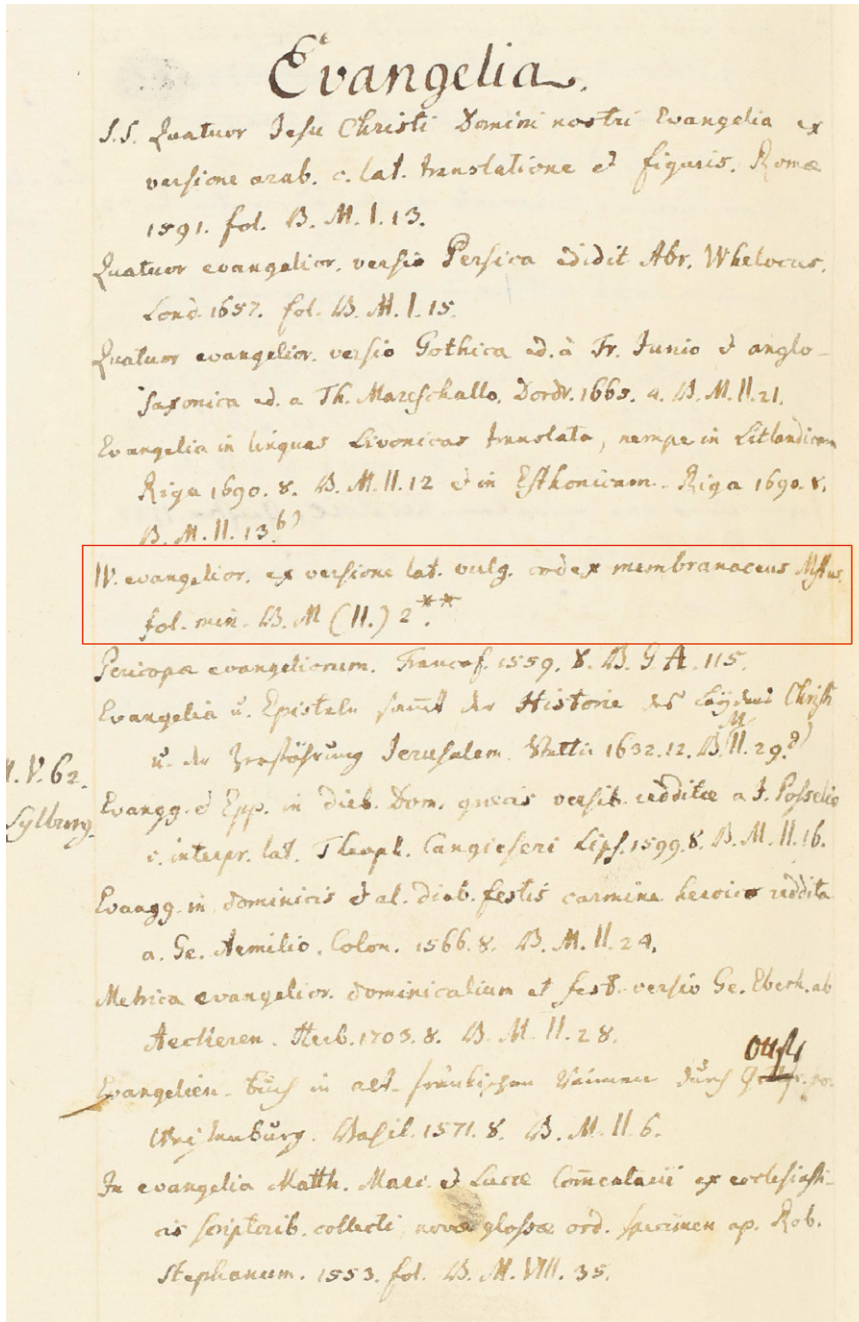 Evangelia.
S.S. Quatuor Jesu Christi Domini nostri Evangelia ex
versione arab. c. lat. translatione et figuris. Romæ
1591. fol. B. M. I. 13.
Quatuor evangelior. versio Persica edidit Abr. Whelocus.
Lond. 1657. fol. B. M. I. 15.
Quatuor evangelior. versio Gothica ed. à Fr. Junio et anglo-
saxonica ed. a Th. Mareschallo. Dordr. 1665. 4. B. M. II. 21.
Evangelia in linguas Livonicas translata, nempe in Litlandicam
Riga 1690. 8. B. M. II. 12 et in Esthonicam. Riga 1690. 8.
B. M. II. 13. 6)
IV. evangelior. ex versione lat. vulg. codex membranaceus Mstus
fol. min. B. M (II.) 2**.
Pericopæ evangeliorum. Francof. 1559. 8. B. G A. 115.
Evangelia u. Episteln samt der Historie des Leydens Christi
u. der Zerstöhrung Jerusalem. Stettin 1632. 12. B. M. II. 29.
V. 62.
Sylburg.
Evangg. et Epp. in dieb. Dom. græcis versib. redditæ a J. Posselio
c. interpr. lat. Theoph. Cangieseri Lips. 1599. 8. B. M. II. 16.
Evangg. in dominicis et al. dieb. festis carmine heroico reddita
a. Ge. Aemilio. Colon. 1566. 8. B. M. II. 24.
Metrica evangelior. dominicalium et fest. versio Ge. Eberh. ab
Aeckeren. Herb. 1703. 8. B. M. II. 28.
Evangelien-buch in alt-fränkischen Reimen durch Otfr
Basil. 1571. 8. B. M. II. 6.
In evangelia Matth. Marc. et Lucæ Com̄entarii ex ecclesiasti-
cis scriptorib. collecti, novæ glossæ ord. specimen ap. Rob.
Stephanum. 1553. fol. B. M. VIII. 35.